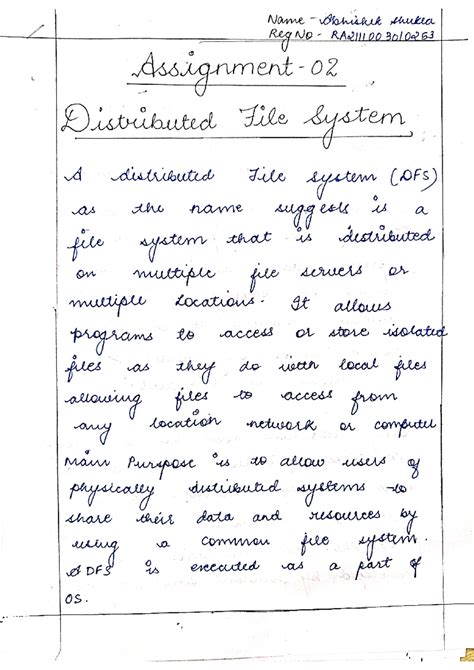 Name - Abhishek Shukla
Reg No - RA2111003010253
Assignment-02
Distributed File System
A distributed File system (DFS)
as the name suggests is a
file system that is distributed
on multiple file servers or
multiple locations. It allows
programs to access or store isolated
files as they do with local files
allowing files to access from
any location network or computer
Main Purpose is to allow users of
physically distributed systems to
share their data and resources by
using a common file system.
A DFS is executed as a part of
OS.